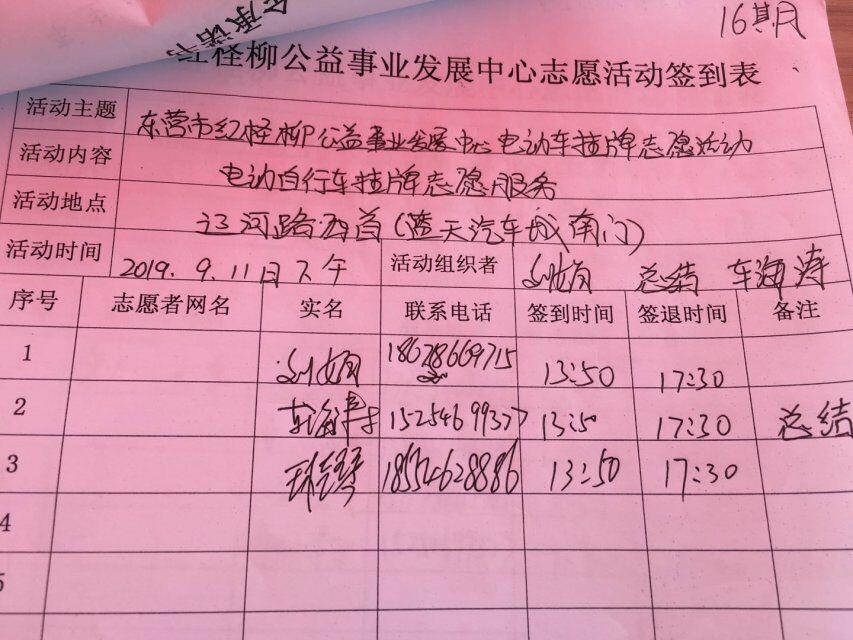 承诺书
16期
红柽柳公益事业发展中心志愿活动签到表
活动主题 东营市红柽柳公益事业发展中心电动车挂牌志愿活动
活动内容 电动自行车挂牌志愿服务
活动地点 辽河路西首(蓝天汽车城南门)
活动时间 2019.9.11日下午 活动组织者 刘娟 总结 车海涛
序号 志愿者网名 实名 联系电话 签到时间 签退时间 备注
1 刘娟 18628669715 13:50 17:30
2 车海涛 15254699377 13:50 17:30 总结
3 18554628886 13:50 17:30
4
5